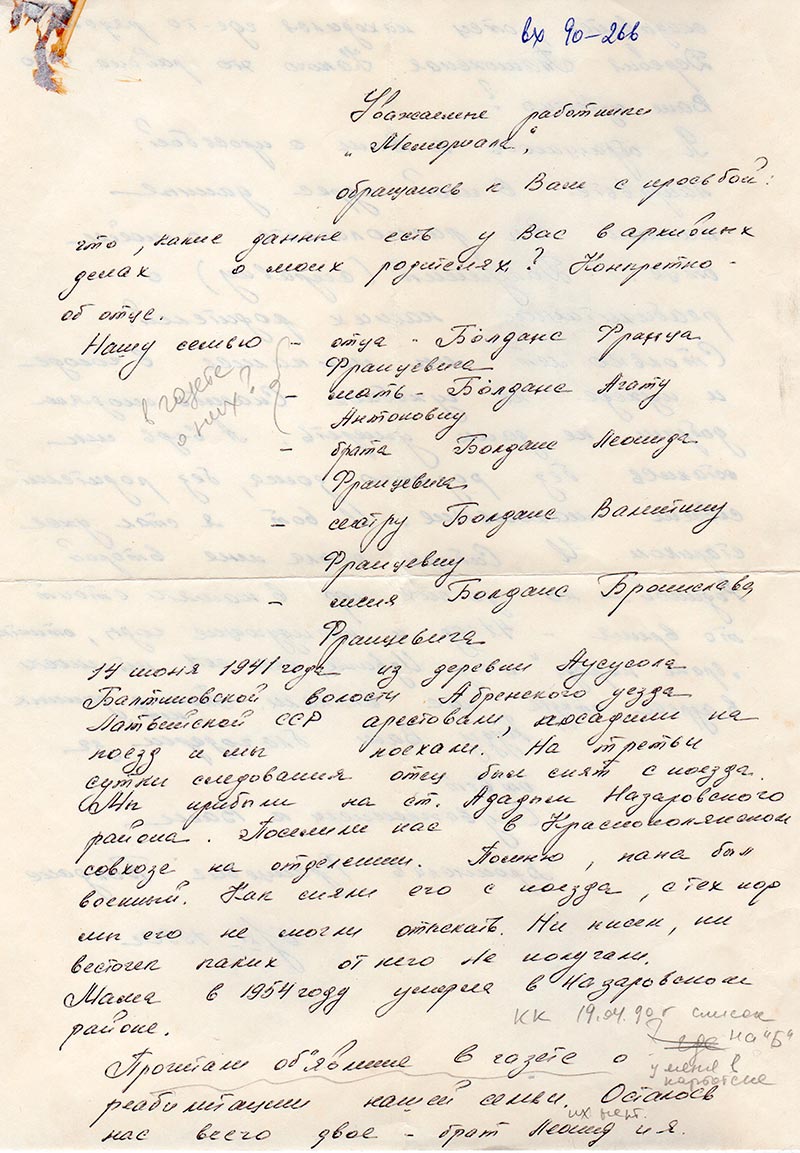 вх 90-266
Уважаемые работники
"Мемориала",
обращаюсь к Вам с просьбой:
что, какие данные есть у Вас в архивных
делах о моих родителях? Конкретно -
об отце.
Нашу семью - отца - Болданс Франца
Францевича
- мать - Болданс Агату
Антоновну
- брата Болданс Леонида
Францевича
- сестру Болданс Валентину
Францевну
- меня Болданс Бронислава
Францевича
в газете
о них?
14 июня 1941 года из деревни Аусусола
Балтиновской волости Абренского уезда
Латвийской ССР арестовали, посадили на
поезд и мы поехали. На третьи
сутки следования отец был снят с поезда.
Мы прибыли на ст. Ададым Назаровского
района. Поселили нас в Краснополянском
совхозе на отделении. Помню, папа был
военный. Как сняли его с поезда, с тех пор
мы его не могли отыскать. Ни писем, ни
весточек никаких от него не получали.
Мама в 1954 году умерла в Назаровском
районе.
КК 19.04.90г список
где на "Б"
у меня в
картотеке
их нет.
Прочитали об"явление в газете о
реабилитации нашей семьи. Осталось
нас всего двое - брат Леонид и я.